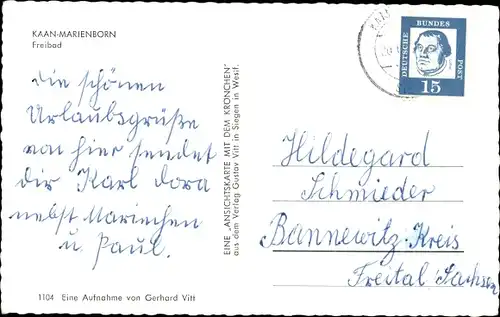 KAAN-MARIENBORN
Freibad
Die schönen
Urlaubsgrüße
von hier sendet
dir Karl Dora
nebst Mariechen
u. Paul.
1104 Eine Aufnahme von Gerhard Vitt
EINE „ANSICHTSKARTE MIT DEM KRÖNCHEN"
aus dem Verlag Gustav Vitt in Siegen in Westf.
DEUTSCHE BUNDES POST
15
Hildegard
Schmieder
Bannewitz-Kreis
Freital Sachsen